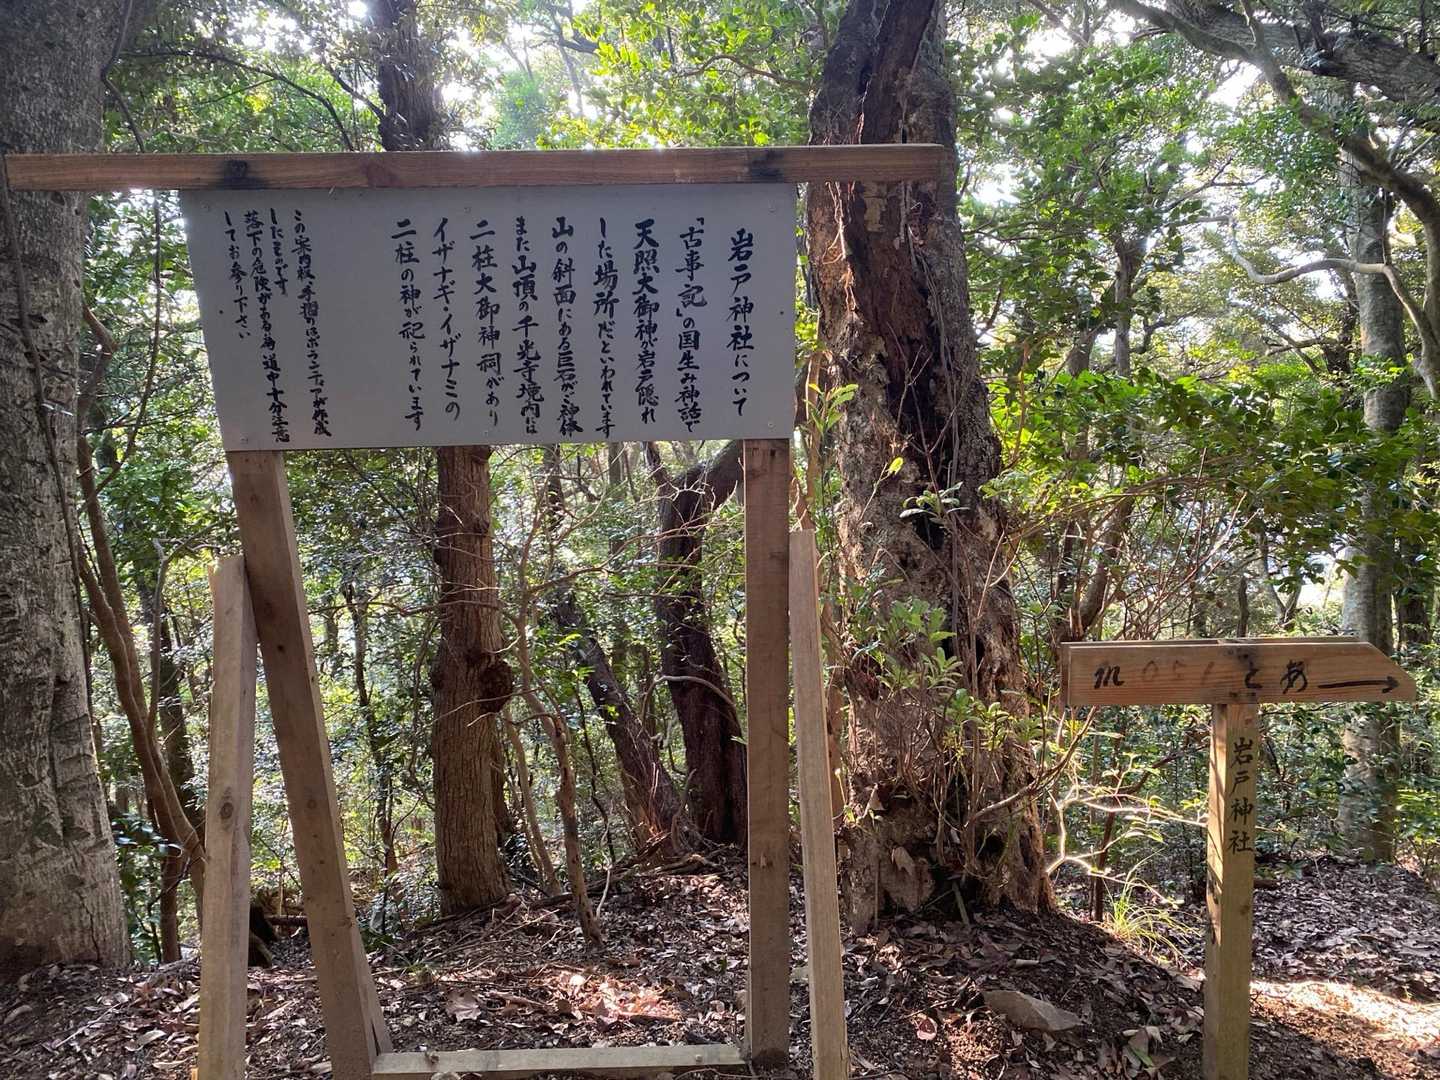 岩戸神社について
「古事記」の国生み神話で
天照大御神が岩戸隠れ
した場所だといわれています
山の斜面にある巨石がご神体
また山頂の千光寺境内には
二柱大御神祠があり
イザナギ・イザナミの
二柱の神が祀られています
この案内板、手摺りはボランティアが作成
したものです。
落下の危険がある為 道中十分注意
してお参り下さい
あと150m
岩戸神社